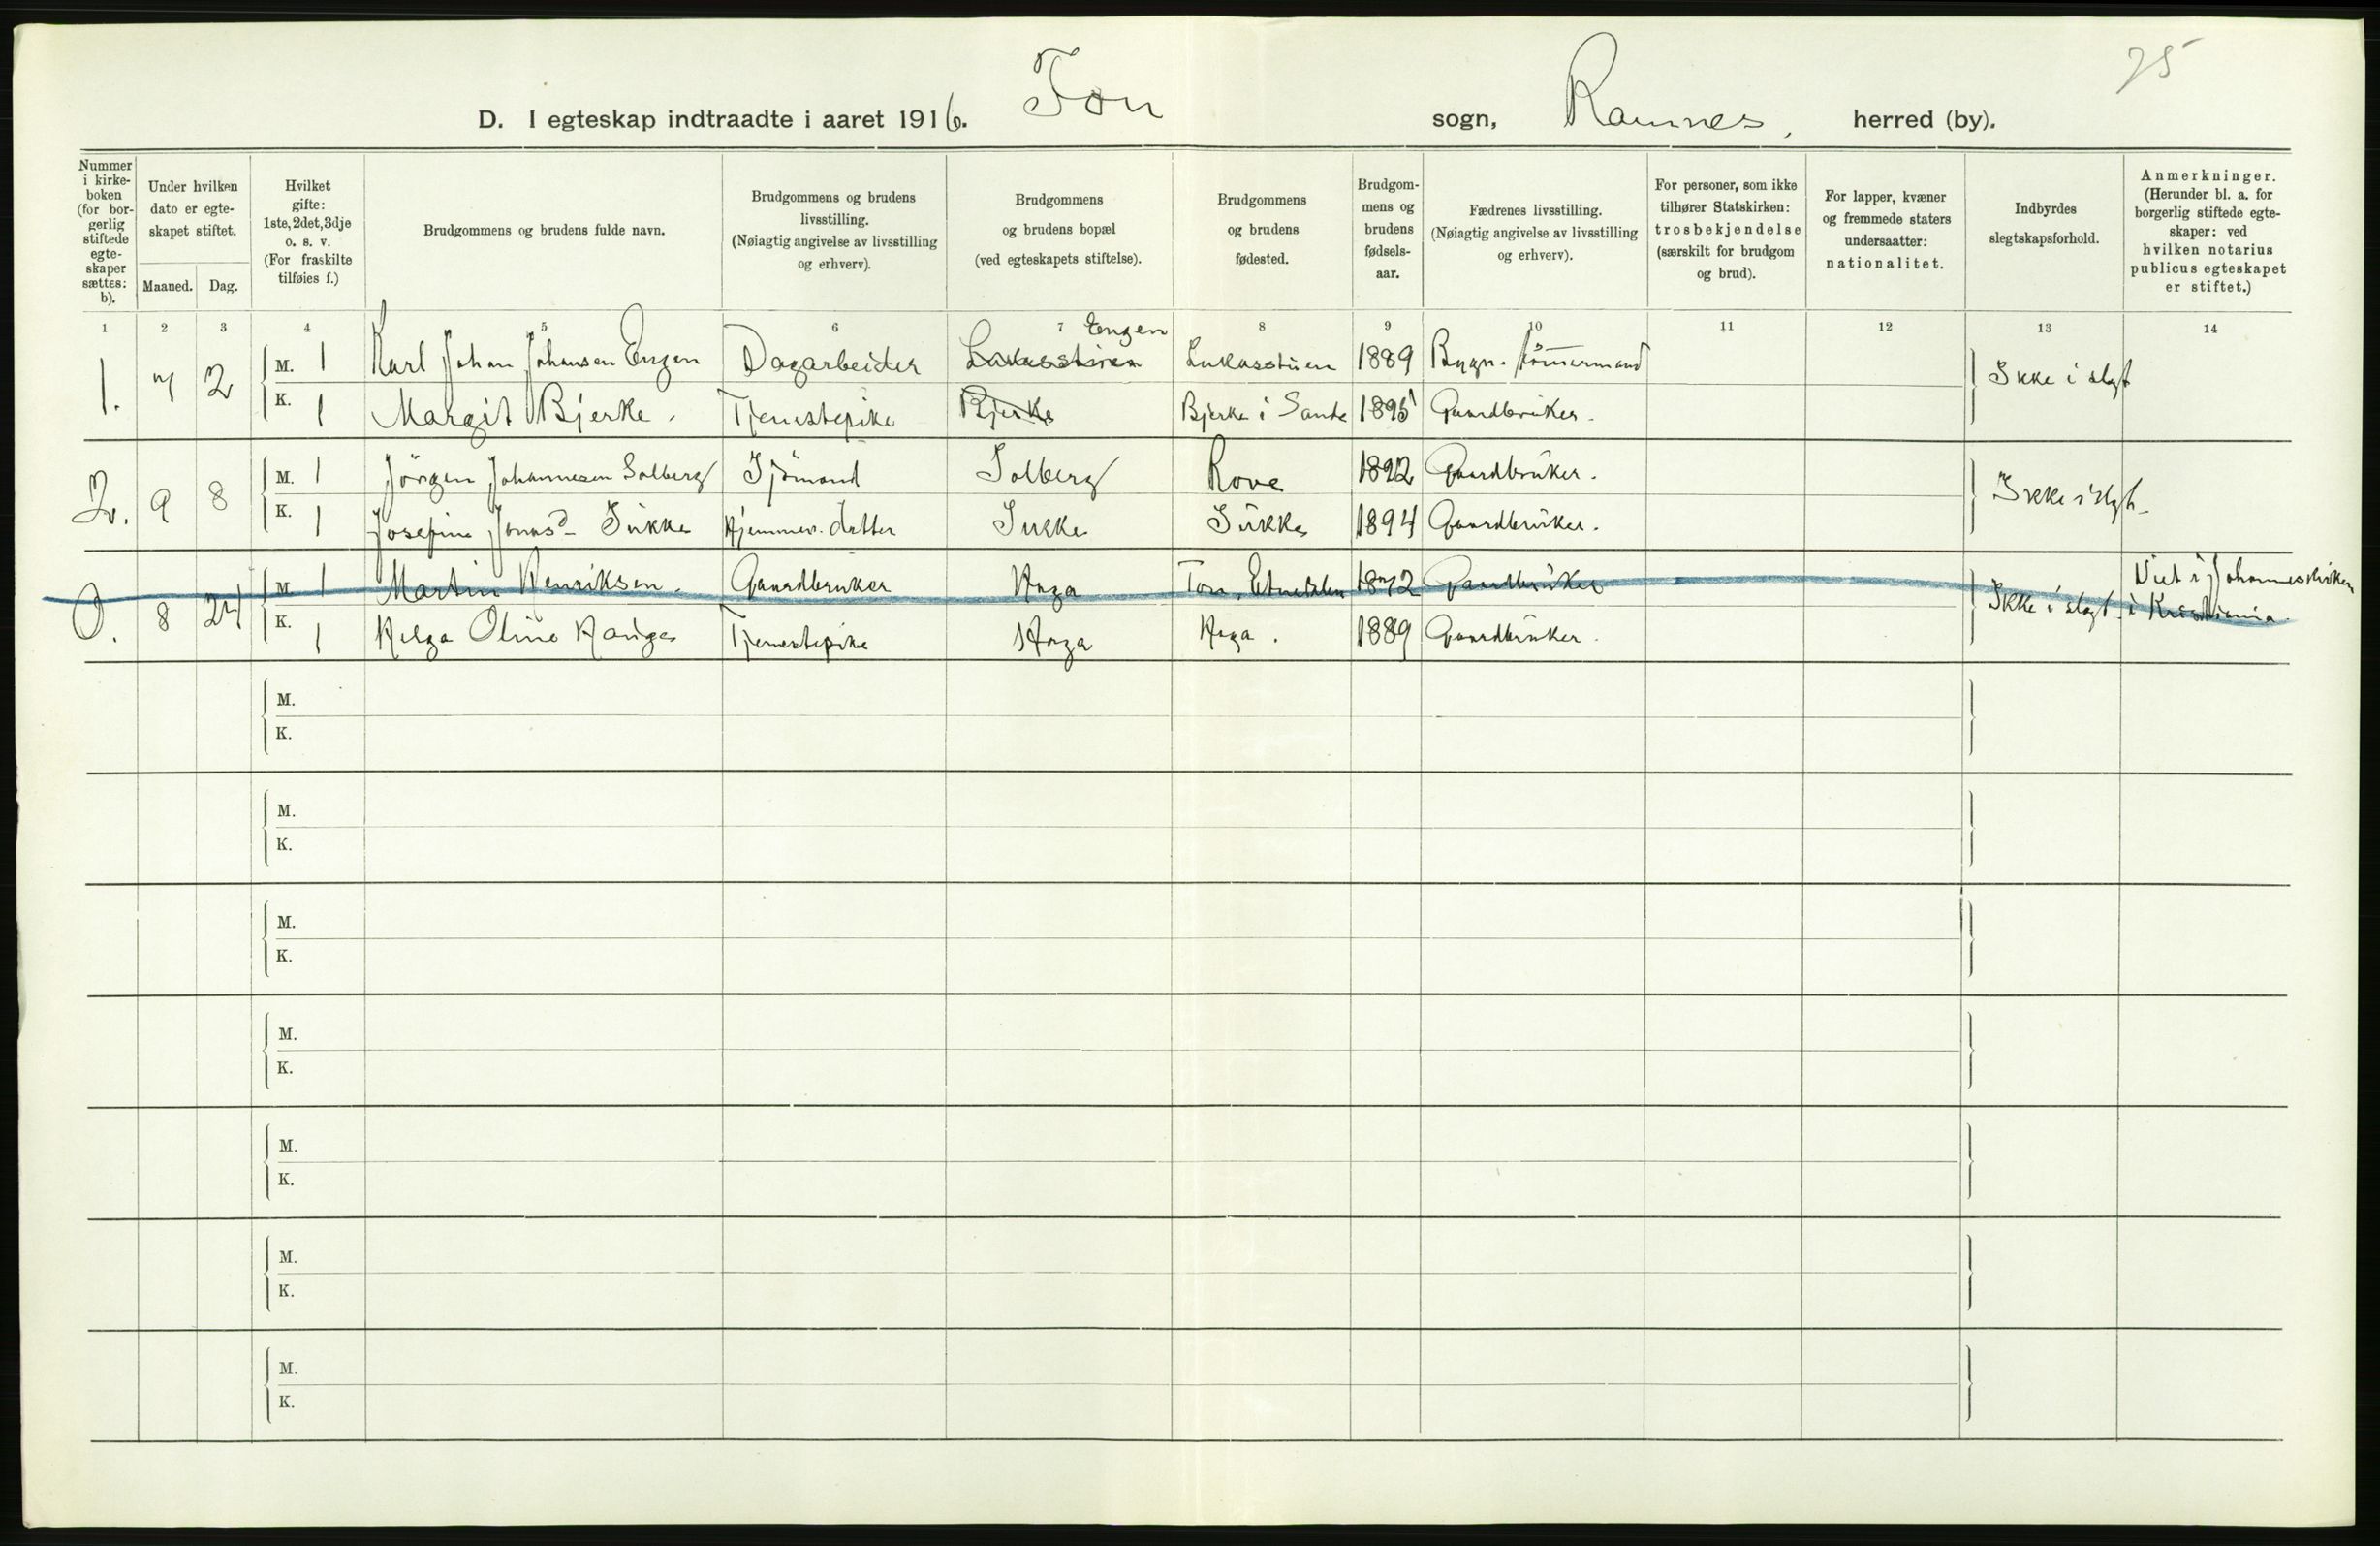 75
D. I egteskap indtraadte i aaret 1916. Fon sogn, Ramnes, herred (by).
Nummer i kirke-boken (for bor-gerlig stiftede egte-skaper sættes: b).
Under hvilken dato er egte-skapet stiftet.
Maaned. Dag.
Hvilket gifte: 1ste, 2det, 3dje o. s. v. (For fraskilte tilføies f.)
Brudgommens og brudens fulde navn.
Brudgommens og brudens livsstilling. (Nøiagtig angivelse av livsstilling og erhverv).
Brudgommens og brudens bopæl (ved egteskapets stiftelse).
Brudgommens og brudens fødested.
Brudgom-mens og brudens fødsels-aar.
Fædrenes livsstilling. (Nøiagtig angivelse av livsstilling og erhverv).
For personer, som ikke tilhører Statskirken: trosbekjendelse (særskilt for brudgom og brud).
For lapper, kvæner og fremmede staters undersaatter: nationalitet.
Indbyrdes slegtskapsforhold.
Anmerkninger. (Herunder bl. a. for borgerlig stiftede egte-skaper: ved hvilken notarius publicus egteskapet er stiftet.)
1 2 3 4 5 6 7 8 9 10 11 12 13 14
Engen
1. 7 2 M. 1 Karl Johan Johansen Engen Dagarbeider Lukasstuen Lukasstuen 1889 Bygn. tömmermand Ikke i slegt
K. 1 Margit Bjerke. Tjenestepike Bjerke Bjerke i Sande 1895 Gaardbruker.
2. 9 8 M. 1 Jörgen Johannesen Solberg Sjömand Solberg Rove 1892 Gaardbruker. Ikke i slegt
K. 1 Josefine Jonasd. Sukke Hjemmev. datter Sukke Sukke 1894 Gaardbruker.
0. 8 24 M. 1 Martin Henriksen. Gaardbruker Haga Ton, Etnedalen 1872 Gaardbruker Ikke i slegt. Viet i Johanneskirken i Kristiania.
K. 1 Helga Oline Hauges Tjenestepike Haga Haga. 1889 Gaardbruker.
M.
K.
M.
K.
M.
K.
M.
K.
M.
K.
M.
K.
M.
K.